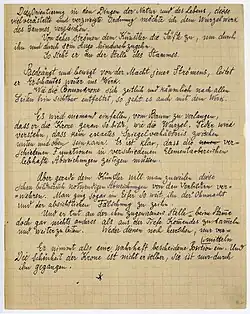 Orientierung in den Dingen der Natur und des Lebens, dieses
vielverästelte und verzweigte Ordnung möchte ich dem Wurzelwerk
des Baumes vergleichen.
Von daher strömen dem Künstler die Säfte zu, um durch
ihn und durch sein Auge hindurchzugehn.
So steht er an der Stelle des Stammes.
Bedrängt und bewegt von der Macht jenes Strömens, leitet
er Erschautes weiter ins Werk.
Wie die Baumkrone sich zeitlich und räumlich nach allen
Seiten hin sichtbar entfaltet, so geht es auch mit dem Werk.
Es wird niemand einfallen, vom Baum zu verlangen,
dass er die Krone genau so bilde, wie die Wurzel. Jeder wird
verstehn, dass kein exactes Spiegelverhältnis zwischen
unten und oben sein kann. Es ist klar, dass die
verschiedenen Funktionen in verschiedenen Elementarbereichen
lebhafte Abweichungen zeitigen müssen.
Aber gerade dem Künstler will man zuweilen diese
schon bildnerisch notwendigen Abweichungen von den Vorbildern
verwehren. Man ging sogar im Eifer so weit, ihn der Ohnmacht
und der absichtlichen Fälschung zu zeihn.
Und er tut an der ihm zugewiesenen Stelle beim Stamme
doch gar nichts anderes, als aus der Tiefe Kommendes zu sammeln
und weiterzuleiten. Weder dienen noch herrschen, nur
vermitteln.
Er nimmt also eine wahrhaft bescheidene Position ein. Und
die Schönheit der Krone ist nicht er selber, sie ist nur durch
ihn gegangen.